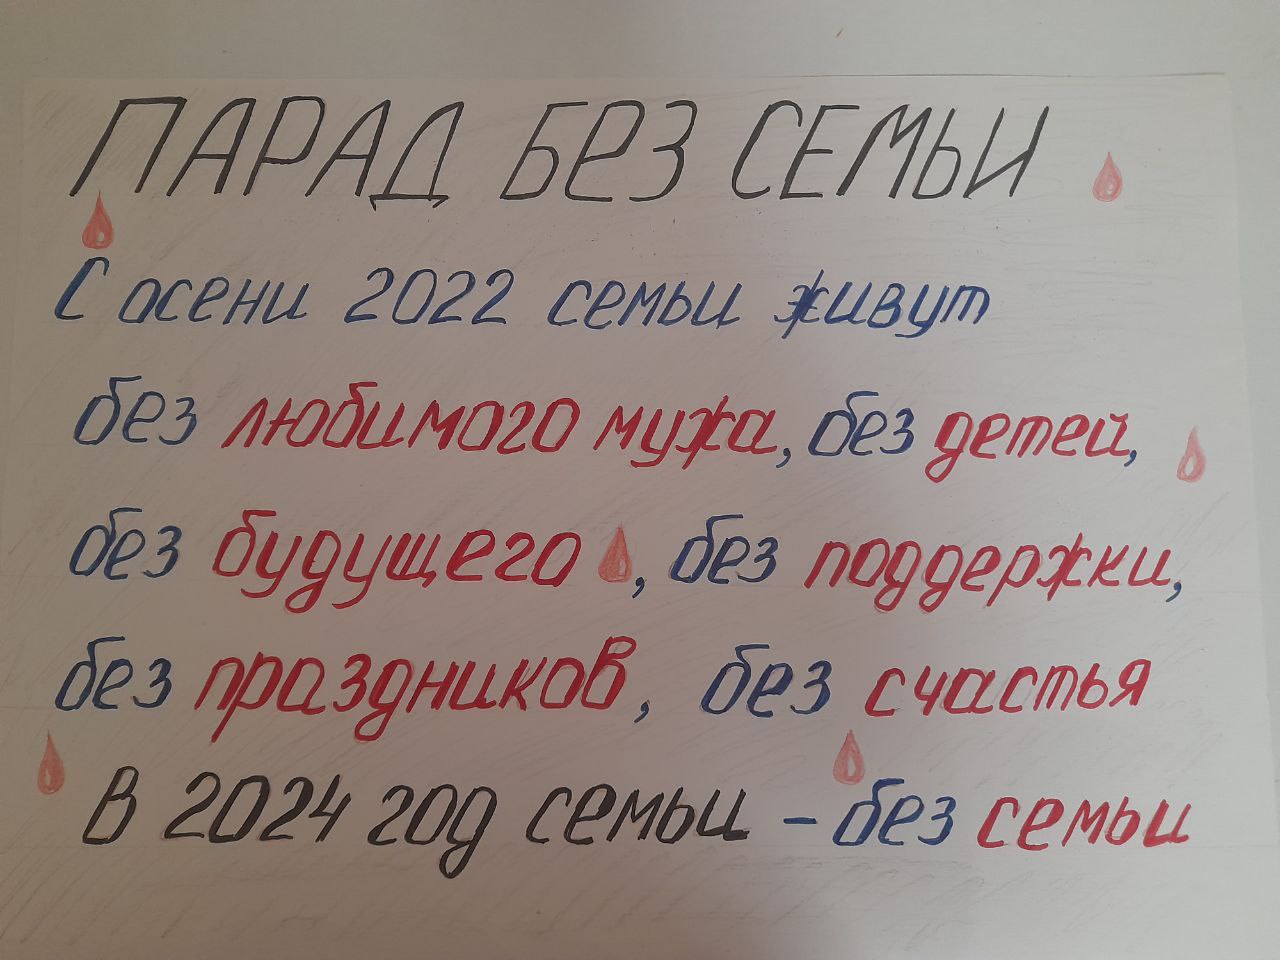 ПАРАД БЕЗ СЕМЬИ
С осени 2022 семьи живут
без любимого мужа, без детей,
без будущего, без поддержки,
без праздников, без счастья
В 2024 год семьи - без семьи